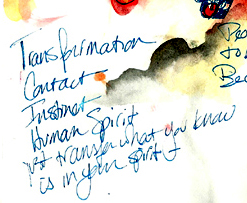 Transformation
Contact
Instinct
Human Spirit
just transfer what you know
is in your spirit